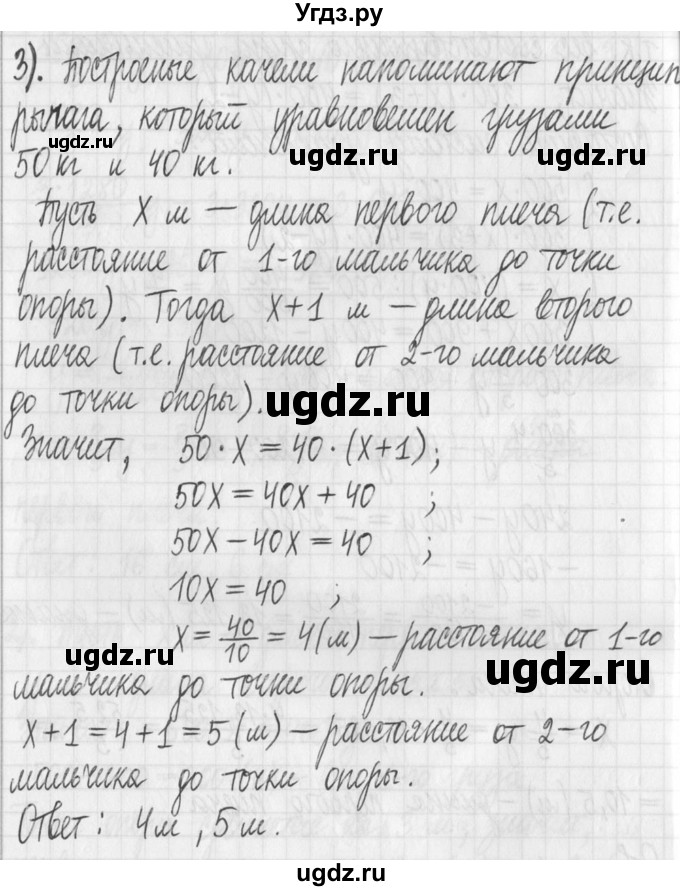 Угдз.ру
3). Построеные качели напоминают принцип
рычага, который уравновешен грузами
50 кг и 40 кг.
ugdz.ru ugdz.ru
Пусть X м — длина первого плеча (т.е.
расстояние от 1-го мальчика до точки
опоры). Тогда X+1 м — длина второго
плеча (т.е. расстояние от 2-го мальчика
до точки опоры).
ugdz.ru
Значит, 50·X = 40·(X+1);
50X = 40X + 40 ;
50X - 40X = 40 ;
10X = 40 ;
X = 40/10 = 4(м) — расстояние от 1-го
ugdz.ru ugdz.ru
мальчика до точки опоры.
X+1 = 4+1 = 5 (м) — расстояние от 2-го
мальчика до точки опоры.
ugdz.ru ugdz.ru
Ответ: 4м, 5м.
ugdz.ru